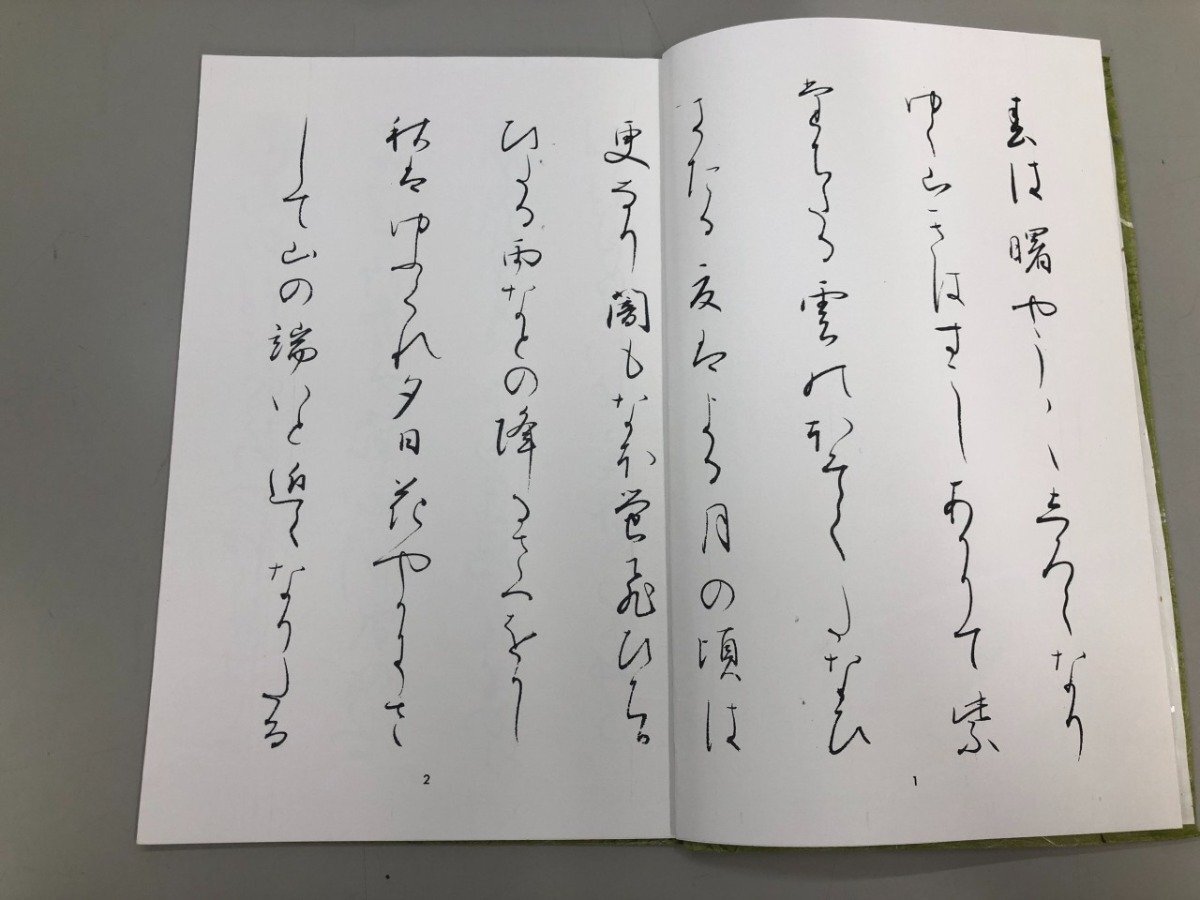 春は曙やう〱しろくなり
ゆく山きはすこしあかりて紫
たちたる雲のほそくたなひ
きたる夏はよる月の頃は
1
更なり 闇もなほ蛍飛ひちか
ひたる雨なとの降るさへをかし
秋はゆふくれ夕日花やかにさ
して山の端いと近くなりたる
2